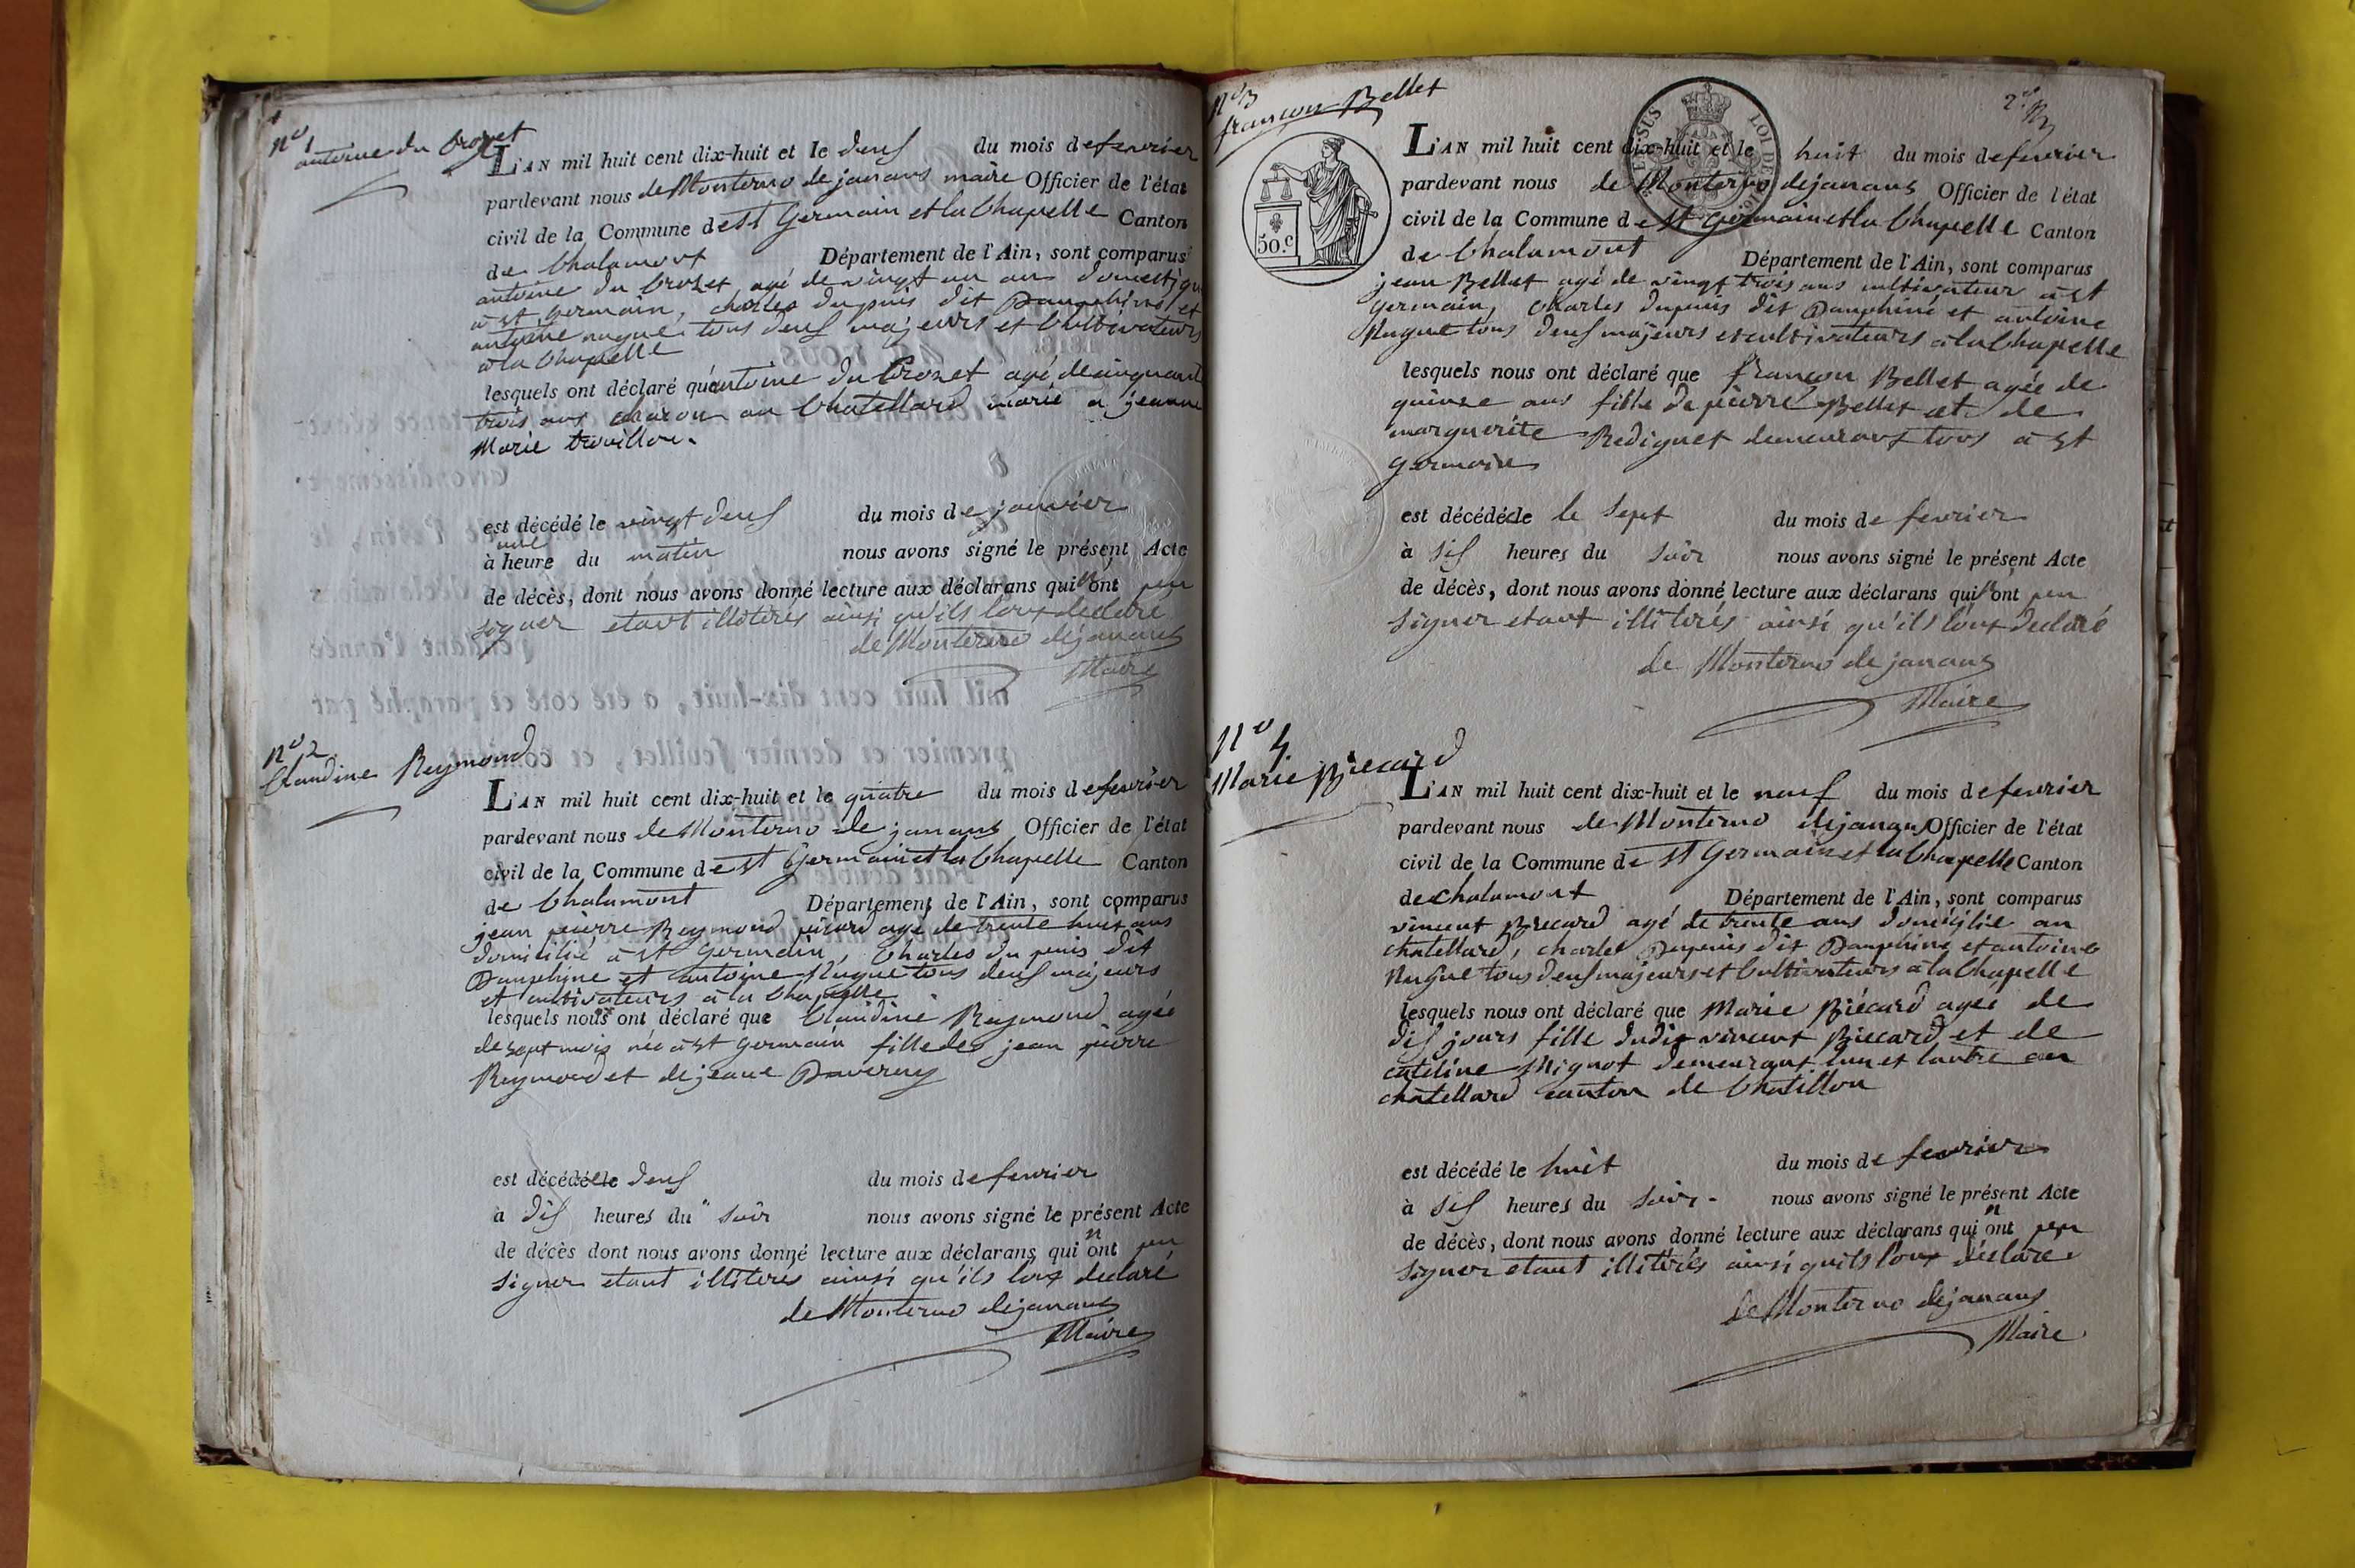 n° 1
antoine du Crozet
L'AN mil huit cent dix-huit et le deux du mois de fevrier
pardevant nous de Monterno de janans maire Officier de l'état
civil de la Commune de st Germain et la Chapelle Canton
de Chalamont Département de l'Ain, sont comparus
antoine du Crozet agé de vingt un ans domestique
à st germain, charles dupuis dit Dauphiné et
antoine nugue tous deux majeurs et Cultivateurs
à la Chapelle
lesquels ont déclaré qu'antoine du Crozet agé de cinquante
trois ans charon au Chatellard marié a jeanne
Marie trouillon.
est décédé le vingt deux du mois de janvier
une
à heure du matin nous avons signé le présent Acte
de décès, dont nous avons donné lecture aux déclarans qui n'ont peu
signer etant illitérés ainsi qu'ils l'ont declaré
de Monterno dejanans
Maire
n° 2
Claudine Reymond
L'AN mil huit cent dix-huit et le quatre du mois de fevrier
pardevant nous de Monterno de janans Officier de l'état
civil de la Commune de st Germain et la Chapelle Canton
de Chalamont Département de l'Ain, sont comparus
jean pierre Reymond agé de trente huit ans
domicilié à st Germain, Charles du puis dit
Dauphine et antoine Nugue tous deux majeurs
et cultivateurs à la Chapelle
lesquels nous ont déclaré que Claudine Reymond agée
de sept mois née à st germain fille de jean pierre
Reymond et de jeane Daverny
est décédée le deux du mois de fevrier
à dix heures du soir nous avons signé le présent Acte
de décès dont nous avons donné lecture aux déclarans qui n'ont peu
signer etant illitérés ainsi qu'ils l'ont declaré
de Monterno dejanans
Maire
n° 3
françon Bellet
50.c
LOI DE
2.e
L'AN mil huit cent dix-huit et le huit du mois de fevrier
pardevant nous de Monterno dejanans Officier de l'état
civil de la Commune de st Germain et la Chapelle Canton
de Chalamont Département de l'Ain, sont comparus
jean Bellet agé de vingt trois ans cultivateur à st
Germain, Charles dupuis dit Dauphiné et antoine
Nugue tous deux majeurs et cultivateurs à la Chapelle
lesquels nous ont déclaré que françon Bellet agée de
quinze ans fille de pierre Bellet et de
marguerite Rediguet demeurant tous à st
germain
est décédée le le sept du mois de fevrier
à six heures du soir nous avons signé le présent Acte
de décès, dont nous avons donné lecture aux déclarans qui n'ont peu
signer etant illitérés ainsi qu'ils l'ont declaré
de Monterno de janans
Maire
n° 4
Marie Brecard
L'AN mil huit cent dix-huit et le neuf du mois de fevrier
pardevant nous de Monterno dejanans Officier de l'état
civil de la Commune de st Germain et la Chapelle Canton
de chalamont Département de l'Ain, sont comparus
vincent Brecard agé de trente ans domicilié au
chatellard, charles Dupuis dit Dauphiné et antoine
Nugue tous deux majeurs et Cultivateurs à la Chapelle
lesquels nous ont déclaré que Marie Brécard ageé de
dix jours fille dudit vincent Brecard et de
cateline Mignot demeurant l'un et l'autre au
chatellard canton de Chatillon
est décédé le huit du mois de fevrier
à six heures du soir nous avons signé le présent Acte
de décès, dont nous avons donné lecture aux déclarans qui n'ont peu
signer etant illitérés ainsi quils l'ont déclaré
de Monterno dejanans
Maire